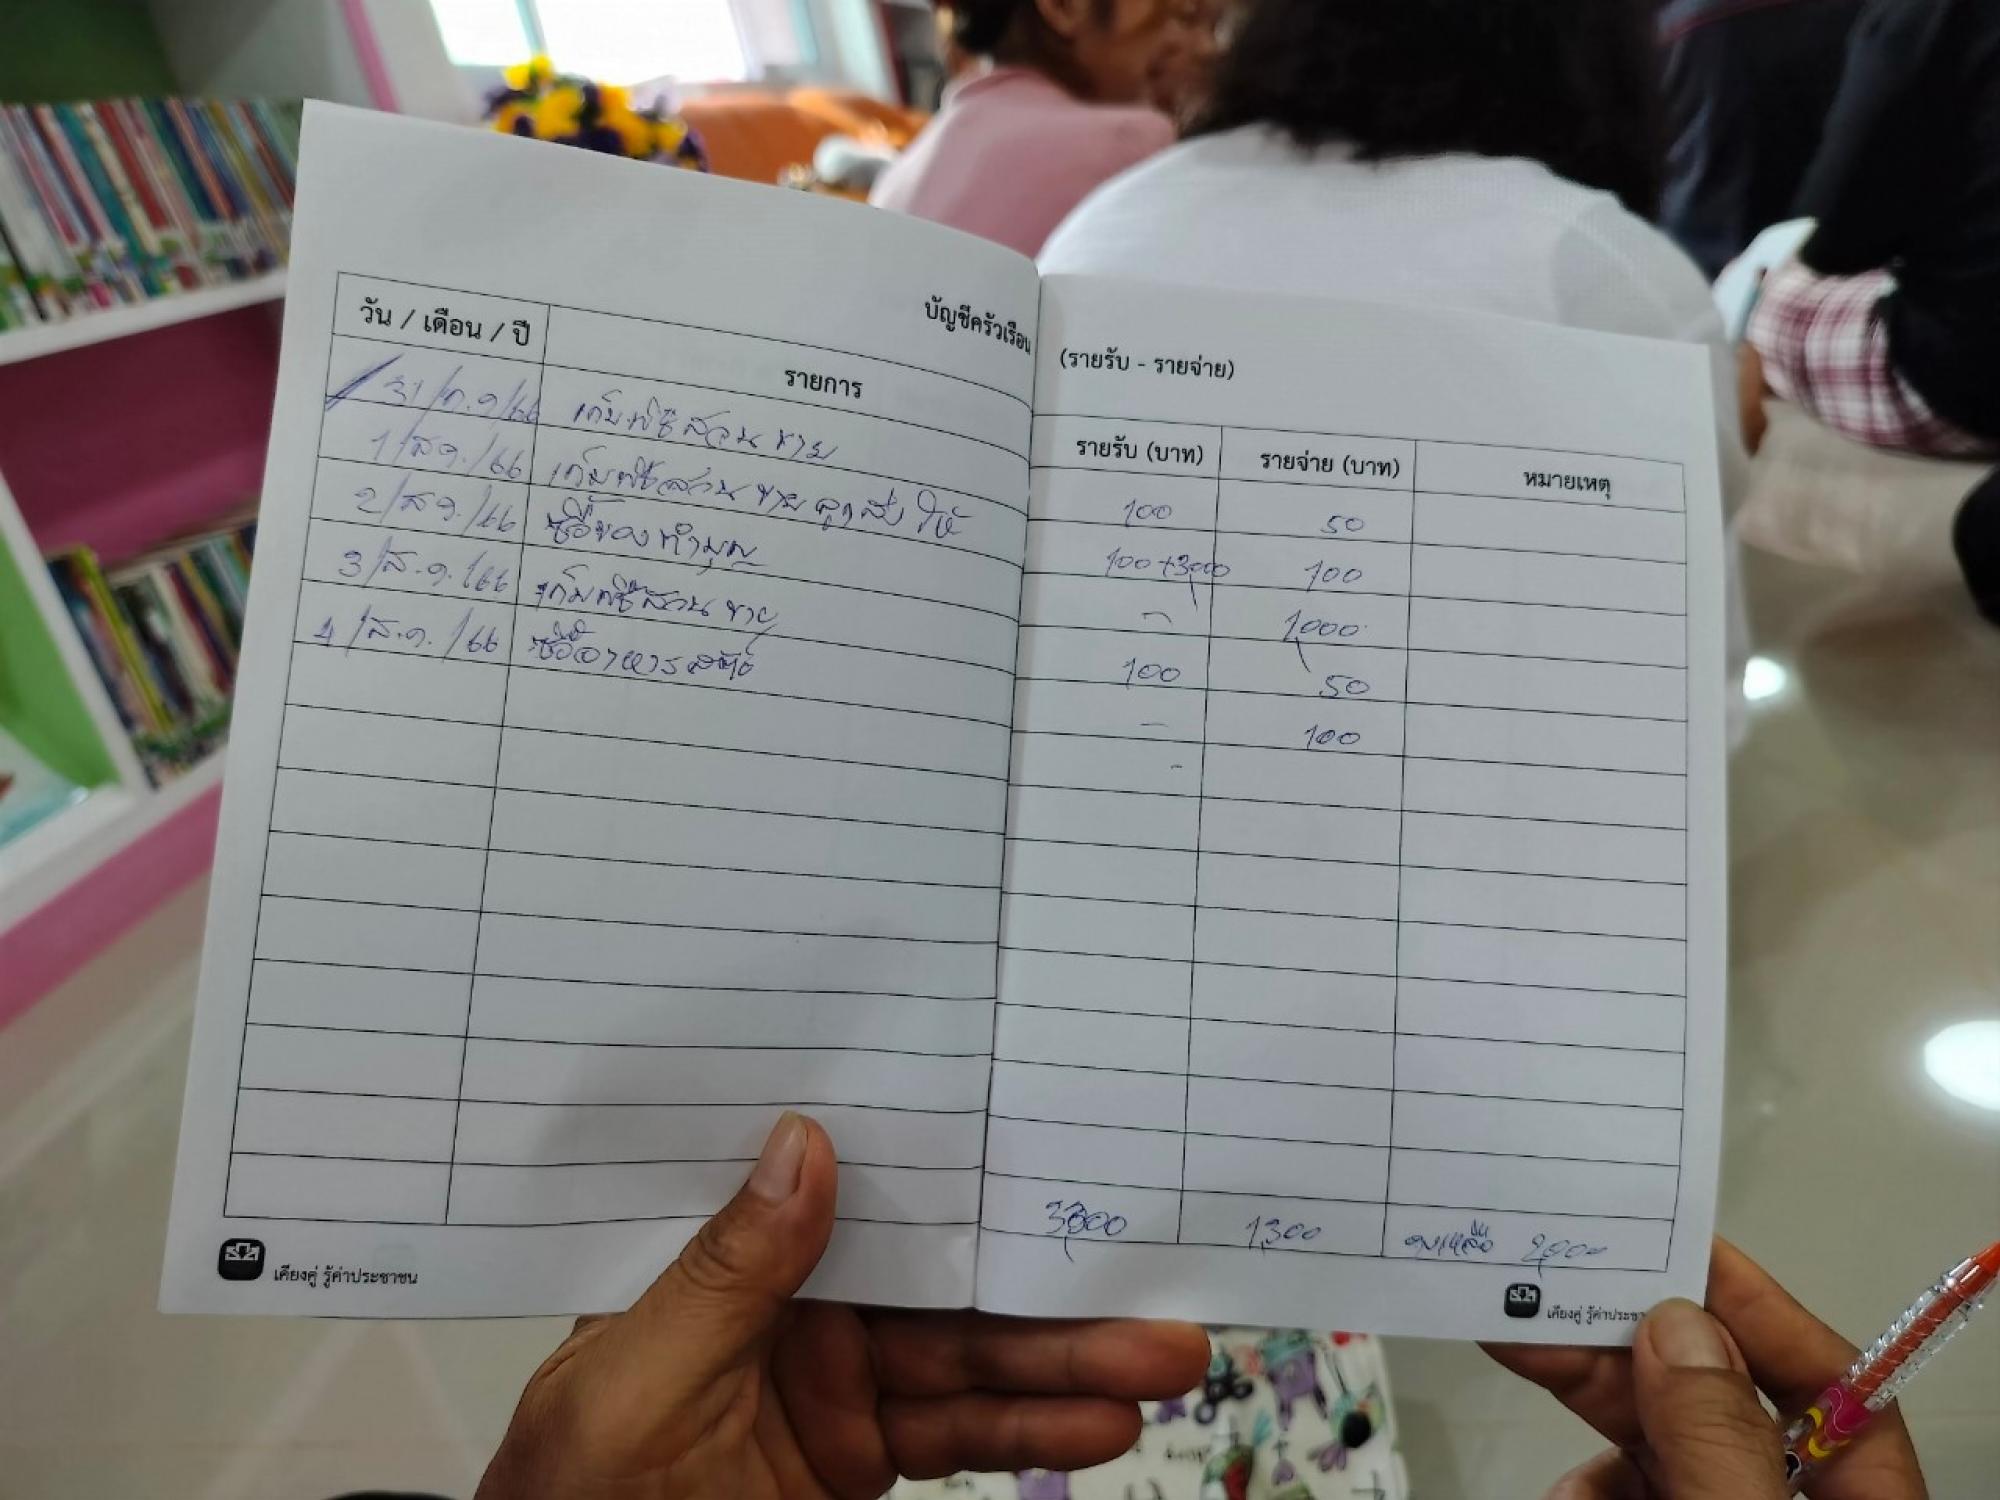 บัญชีครัวเรือน (รายรับ - รายจ่าย)
วัน / เดือน / ปี รายการ รายรับ (บาท) รายจ่าย (บาท) หมายเหตุ
31/ก.ค/66 เก็บพืชสวนขาย 100 50
1/ส.ค./66 เก็บพืชสวนขาย ลูกส่งให้ 100+3,000 100
2/ส.ค./66 ซื้อของทำบุญ - 1,000
3/ส.ค./66 เก็บพืชสวนขาย 100 50
4/ส.ค./66 ซื้ออาหารสัตว์ - 100
-
3,300 1,300 คงเหลือ 2,000
เคียงคู่ รู้ค่าประชาชน
เคียงคู่ รู้ค่าประชา